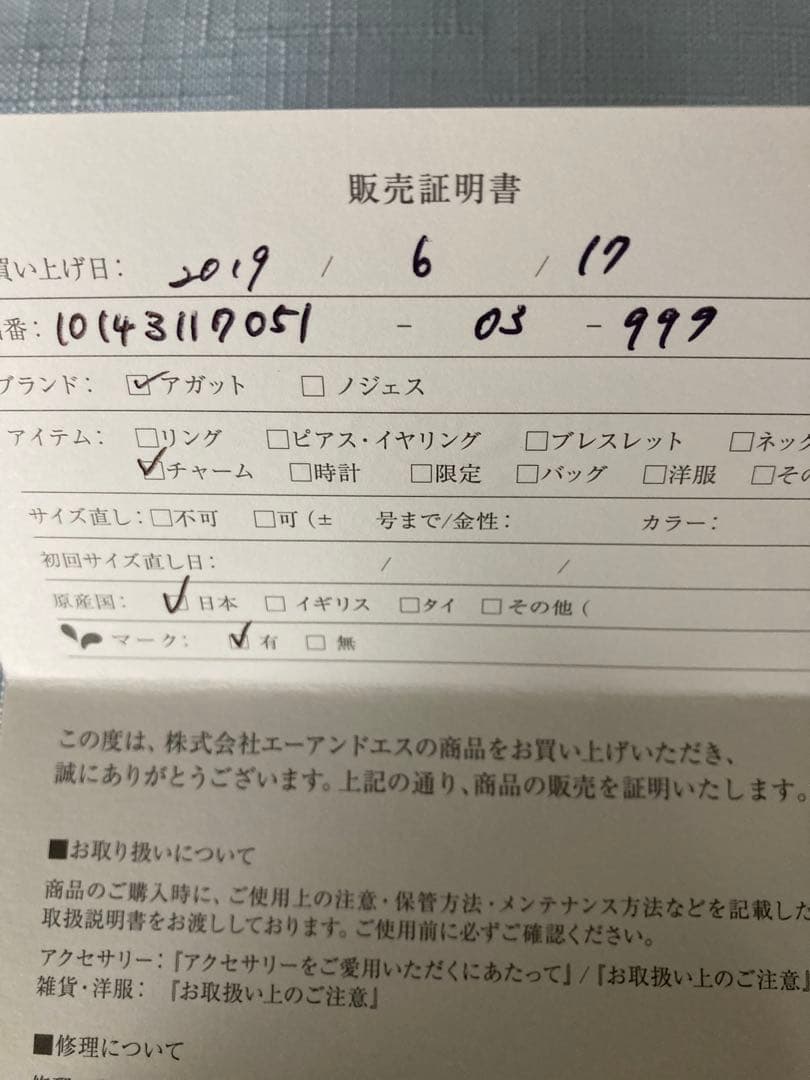 販売証明書
買い上げ日： 2019 / 6 / 17
品番：10143117051 - 03 - 999
ブランド： ☑アガット □ ノジェス
アイテム： □リング □ピアス・イヤリング □ブレスレット □ネック
☑チャーム □時計 □限定 □バッグ □洋服 □その
サイズ直し：□不可 □可（± 号まで/金性： カラー：
初回サイズ直し日： / /
原産国： ☑日本 □ イギリス □タイ □その他（
マーク： ☑有 □ 無
この度は、株式会社エーアンドエスの商品をお買い上げいただき、
誠にありがとうございます。上記の通り、商品の販売を証明いたします。
■お取り扱いについて
商品のご購入時に、ご使用上の注意・保管方法・メンテナンス方法などを記載した
取扱説明書をお渡ししております。ご使用前に必ずご確認ください。
アクセサリー：『アクセサリーをご愛用いただくにあたって』/『お取扱い上のご注意』
雑貨・洋服： 『お取扱い上のご注意』
■修理について